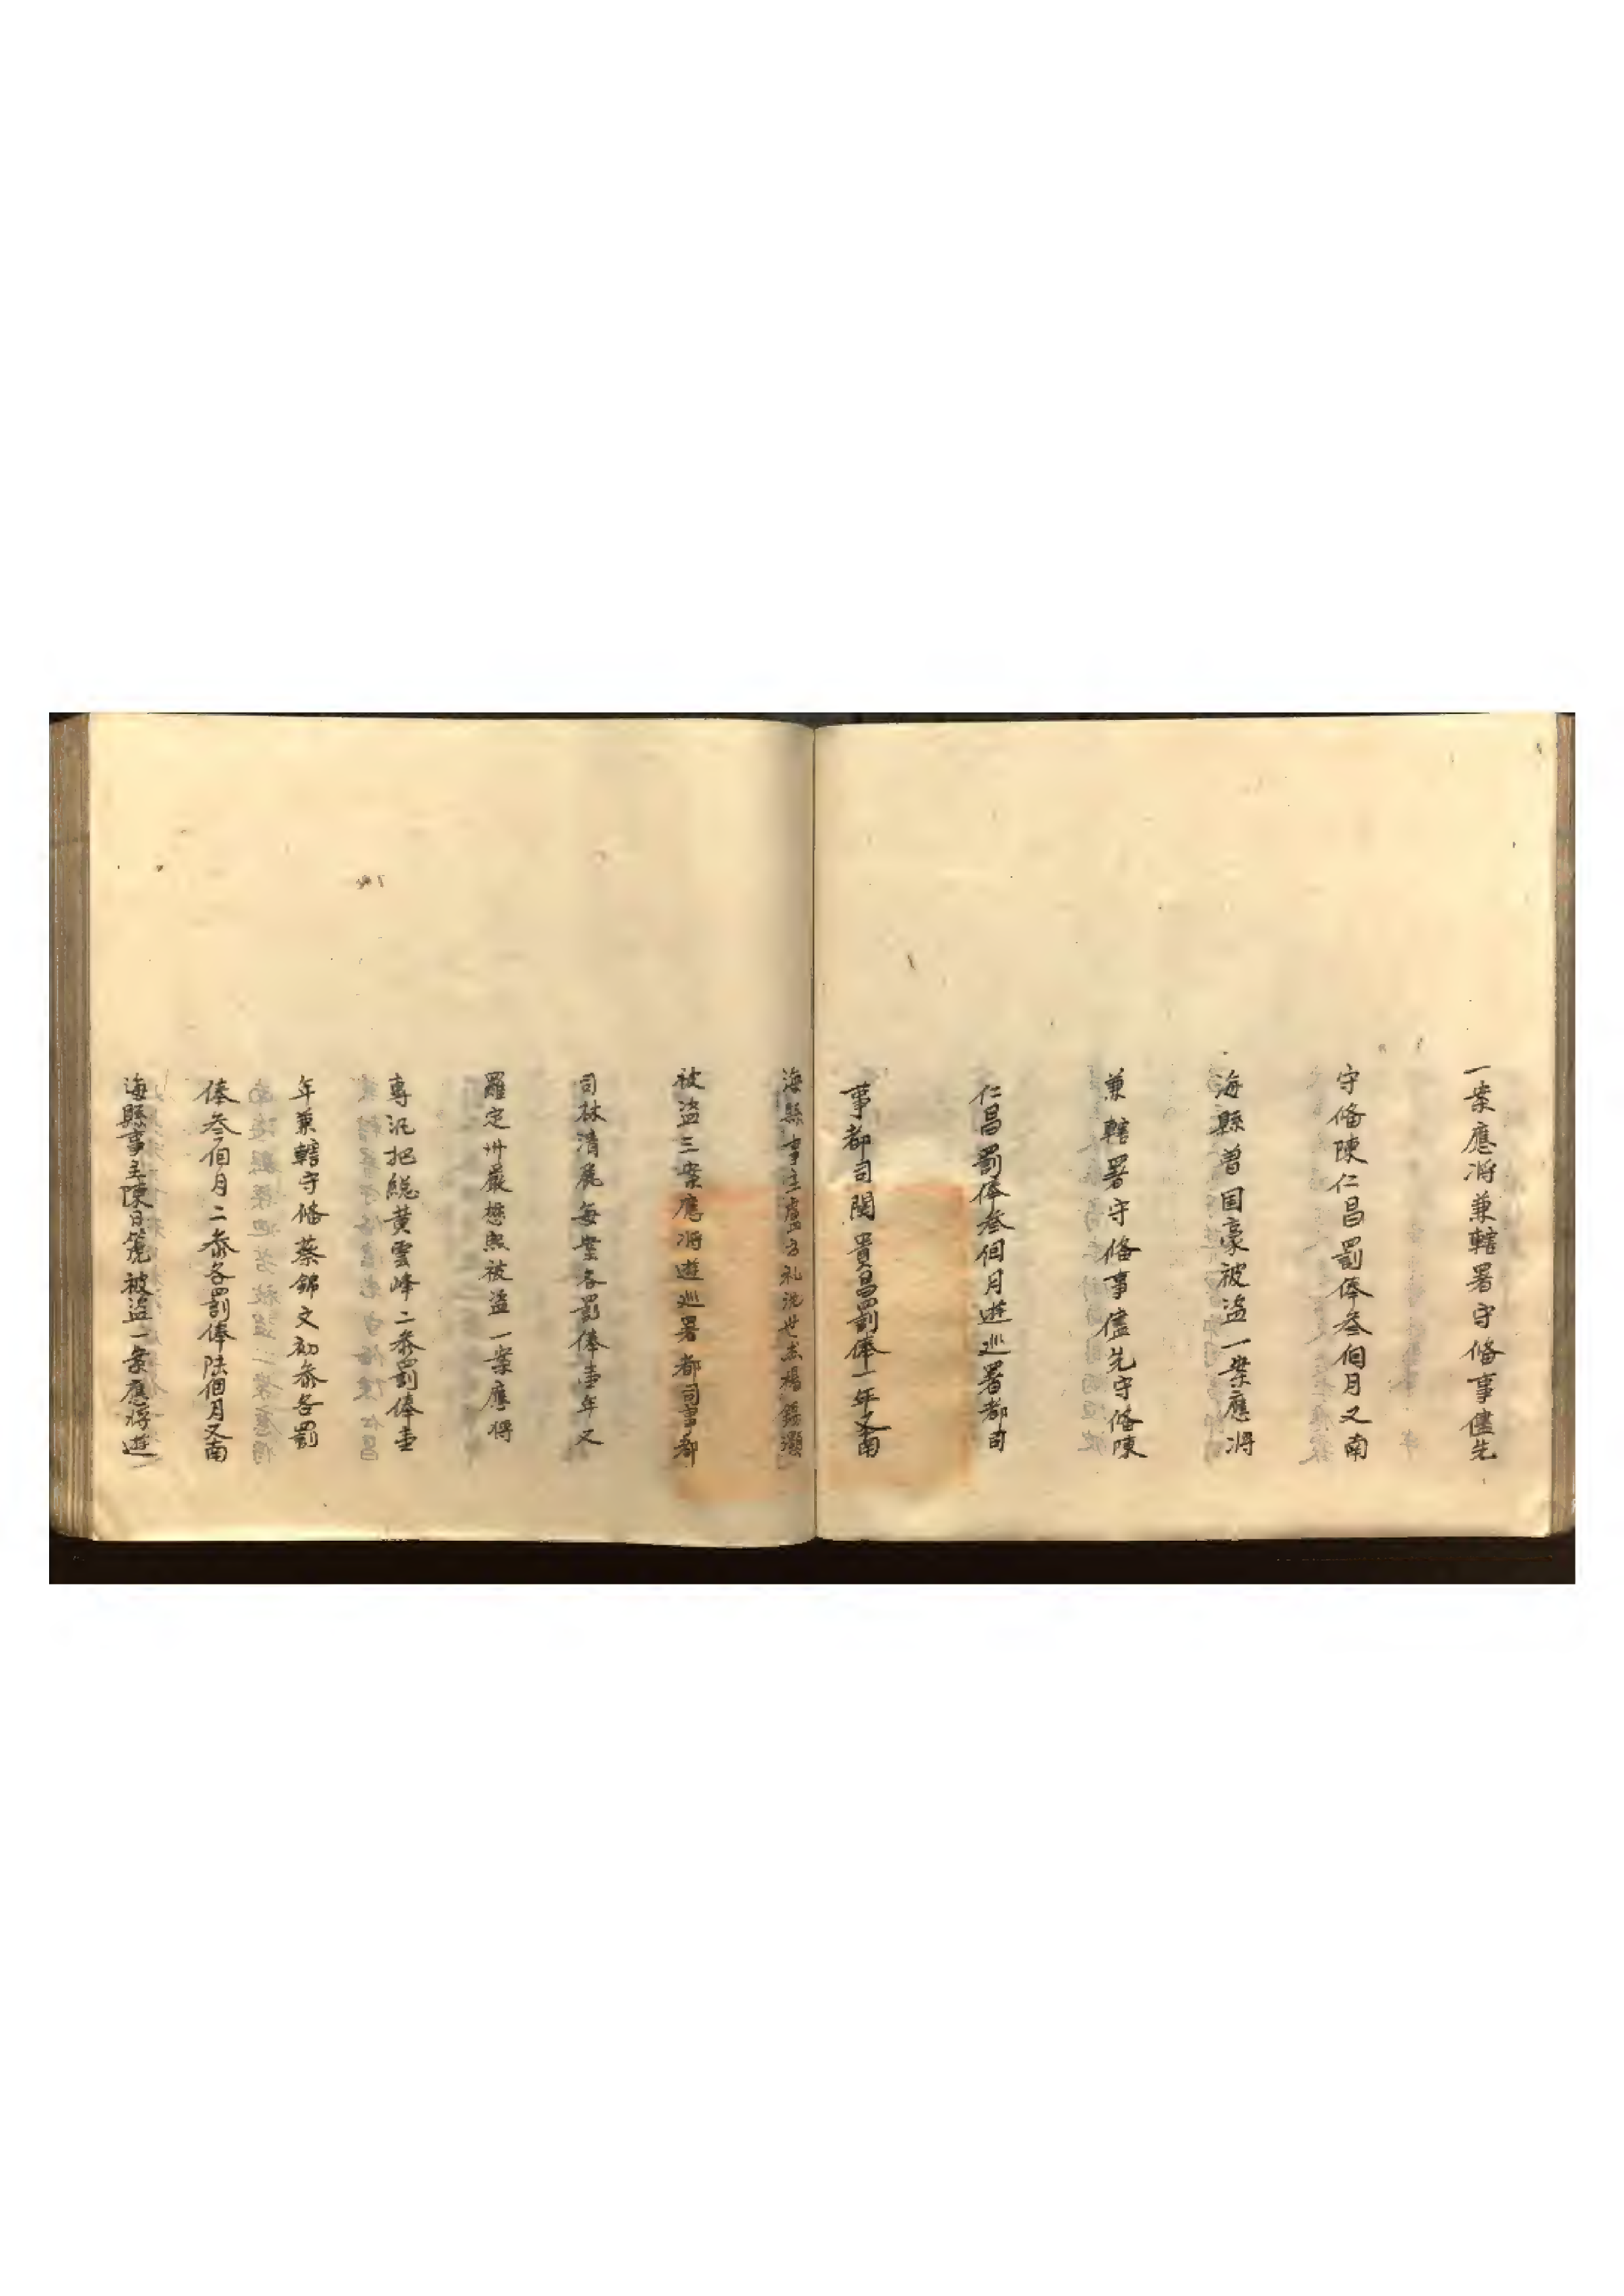 一案應将兼轄署守俻事儘先
守俻陳仁昌罰俸叁個月又南
海縣曾国豪被盗一案應将
兼轄署守俻事儘先守俻陳
仁昌罰俸叁個月遊巡署都司
事都司閔貴昌罰俸一年又南
海縣事主盧方礼冼世杰楊錫灝
被盗三案應将遊巡署都司事都
司林清 每案各罰俸壹年又
羅定州嚴懋熙被盗一案應将
專汛把総黄雲峰二叅罰俸壹
年兼轄守俻蔡錦文初叅各罰
俸叁個月二叅各罰俸陸個月又南
海縣事主陳日 被盗一案應将遊